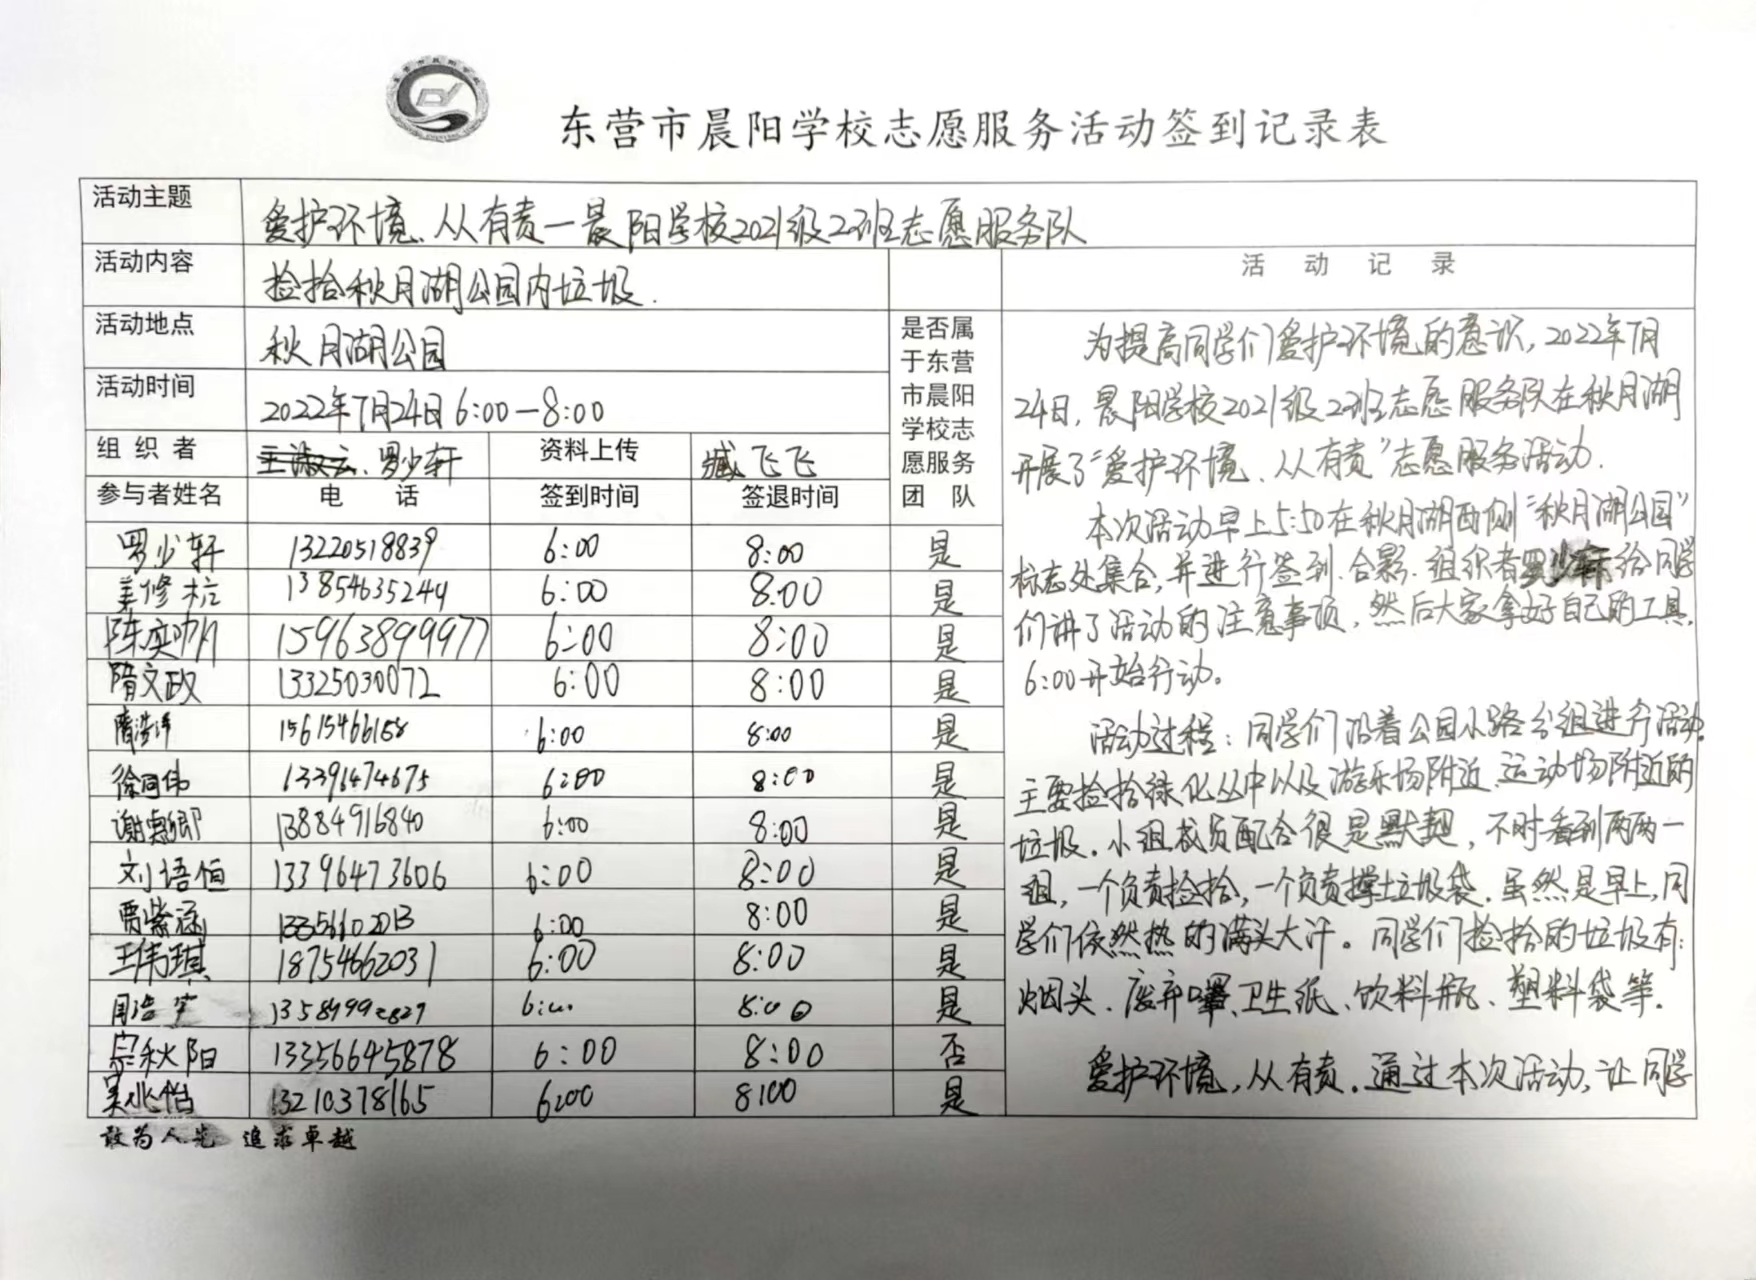 东营市晨阳学校志愿服务活动签到记录表
活动主题 爱护环境、从有责一晨阳学校2021级2班志愿服务队
活动内容 捡拾秋月湖公园内垃圾.
活动地点 秋月湖公园
活动时间 2022年7月24日6:00-8:00
组织者 罗少轩 资料上传 臧飞飞
是否属
于东营
市晨阳
学校志
愿服务
团队
参与者姓名 电话 签到时间 签退时间
罗少轩 13220518839 6:00 8:00 是
姜修杭 13854635244 6:00 8:00 是
陈奕帆 15963899977 6:00 8:00 是
隋文政 13325030072 6:00 8:00 是
15615466158 6:00 8:00 是
徐同伟 13391474675 6:00 8:00 是
谢卿 13884916840 6:00 8:00 是
刘语恒 13396473606 6:00 8:00 是
贾紫涵 13356102013 6:00 8:00 是
王伟琪 18754662031 6:00 8:00 是
周浩 13589992827 6:00 8:00 是
宗秋阳 13356645878 6:00 8:00 否
吴兆怡 13210378165 6:00 8:00 是
活动记录
为提高同学们爱护环境的意识,2022年7月
24日,晨阳学校2021级2班志愿服务队在秋月湖
开展了“爱护环境、从有责”志愿服务活动.
本次活动早上5:50在秋月湖西侧“秋月湖公园”
标志处集合,并进行签到、合影.组织者罗少轩给同学
们讲了活动的注意事项,然后大家拿好自己的工具,
6:00开始行动。
活动过程:同学们沿着公园小路分组进行活动.
主要捡拾绿化丛中以及游乐场附近、运动场附近的
垃圾.小组成员配合很是默契,不时看到两两一
组,一个负责捡拾,一个负责撑垃圾袋.虽然是早上,同
学们依然热的满头大汗。同学们捡拾的垃圾有:
烟头、废弃口罩、卫生纸、饮料瓶、塑料袋等.
爱护环境,从有责.通过本次活动,让同学
敢为人先 追求卓越